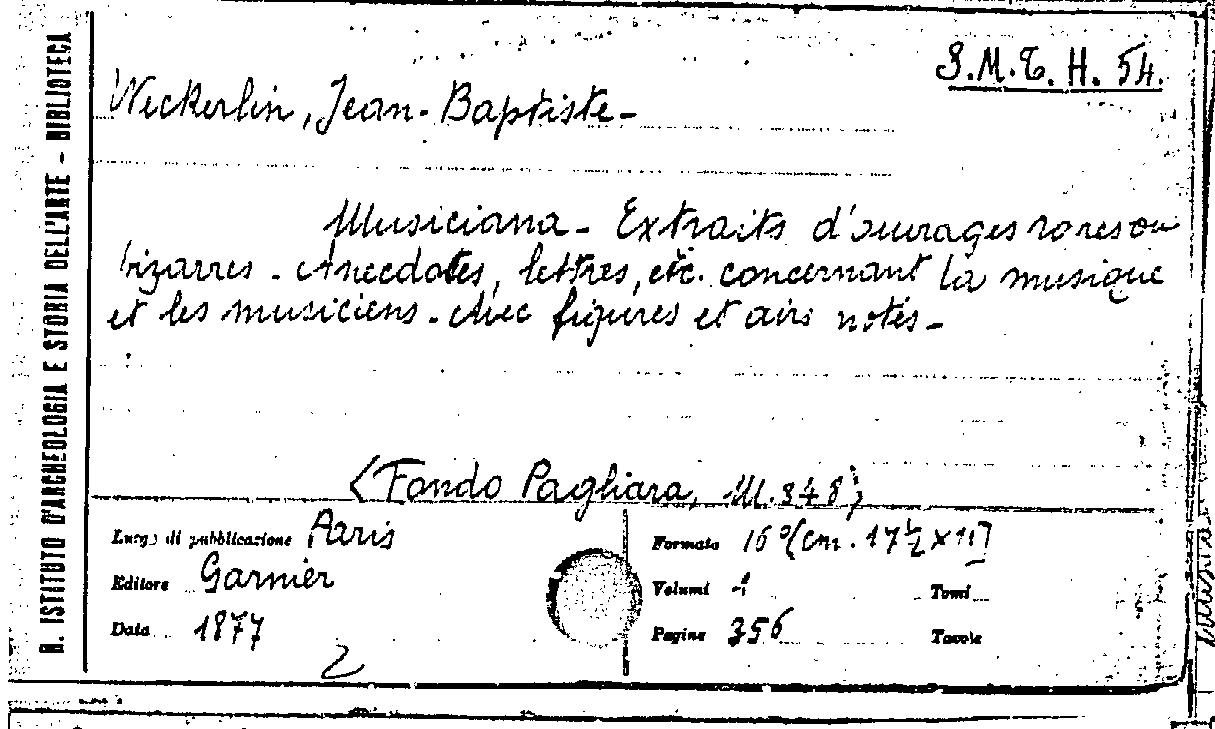 R. ISTITUTO D'ARCHEOLOGIA E STORIA DELL'ARTE - BIBLIOTECA
S.M.T. H. 54.
Weckerlin, Jean-Baptiste-
Musiciana - Extraits d'ouvrages rares ou
bizarres - Anecdotes, lettres, etc. concernant la musique
et les musiciens - Avec figures et airs notés -
(Fondo Pagliara, M. 348)
Luogo di pubblicazione Paris
Editore Garnier
Data 1877
2
Formato 16º (cm. 17½ x 11]
Volumi 1 Tomi
Pagine 356 Tavole